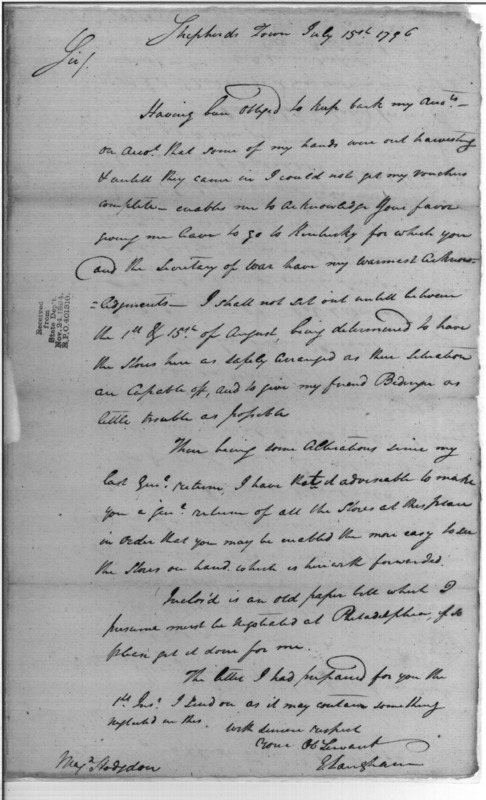 Shepherds Town July 15th. 1796
Sir/
Having been obliged to keep back my Accts. —
on Acct. that some of my hands were out harvesting
& untill they came in I could not get my vouchers
complete — enables me to acknowledge your favor
giving me leave to go to Kentucky for which you
and the Secretary of War have my warmest Acknow-
-ledgments — I shall not set out untill between
the 1st. & 15th. of August, being determined to have
the Stores here as safely arranged as their situation
are capable off, and to give my friend Bedinger as
little trouble as possible
There being some Alterations since my
last Genl. return, I have it advisable to make
you a Genl. return of all the Stores at this place
in order that you may be enabled the more easy to see
the Stores on hand which is herewith forwarded.
Inclos'd is an old paper bill which I
presume must be negotiated at Philadelphia, if so
please get it done for me.
The letter I had prepared for you the
1st. Inst. I send on as it may contain something
neglected in this.
with sincere respect
Your Ob Servant
E Langham
Majr. Hodgdon
Received
from
State Dep't.
Nov. 24, 1894.
R.P.O. 401810.